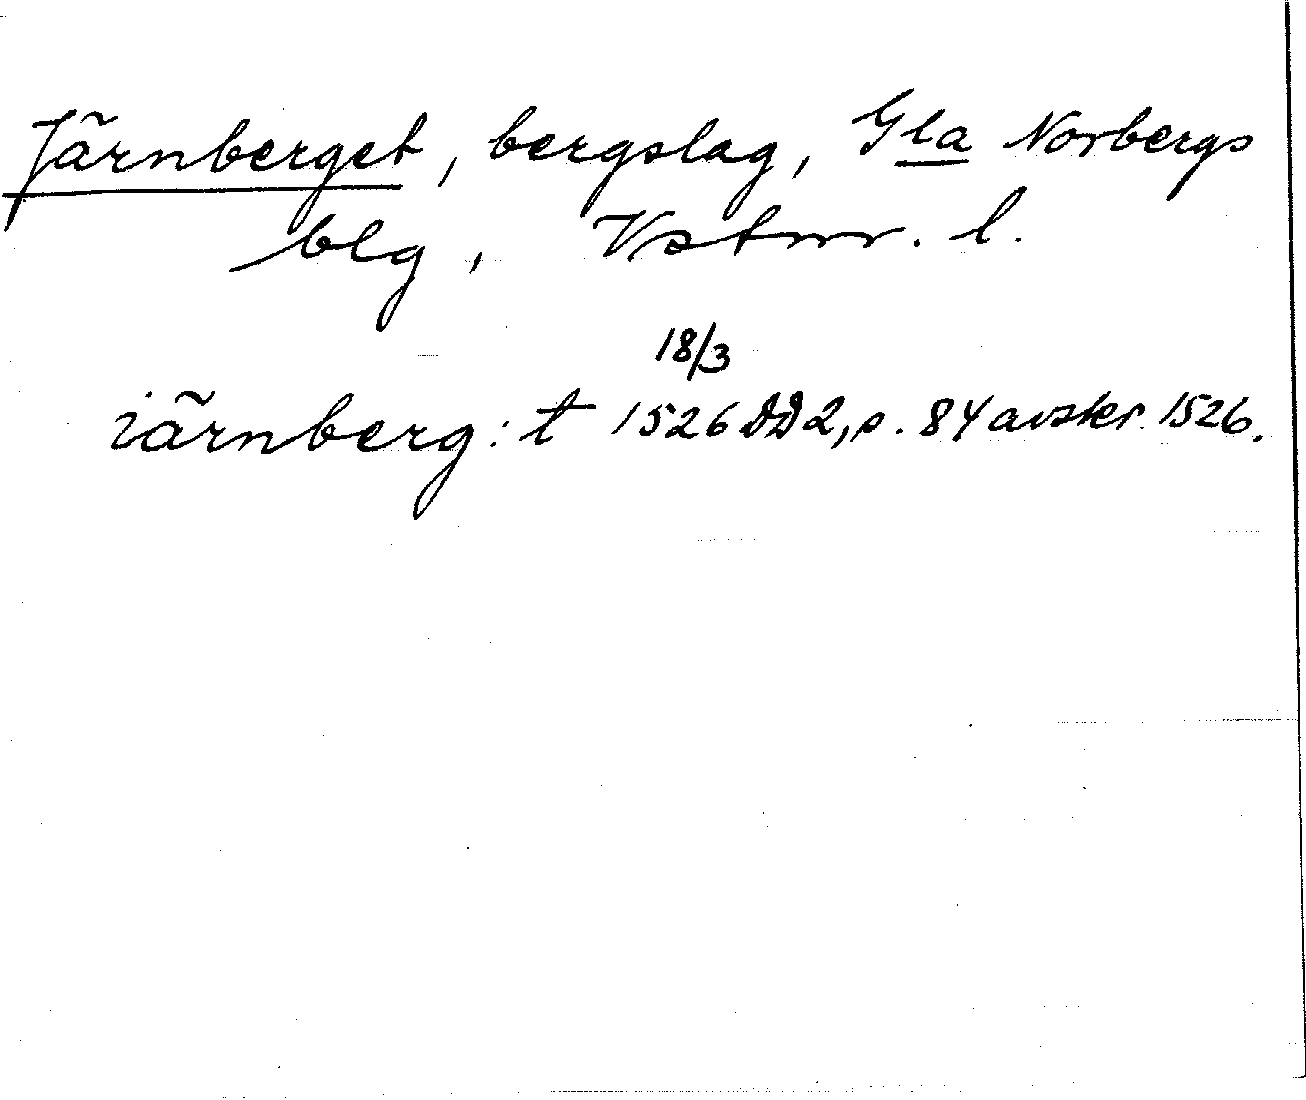 Järnberget, bergslag, Gla Norbergs
blg, Vstmr. l.
18/3
iärnberg: t 1526 DD2, s. 84 avskr. 1526.